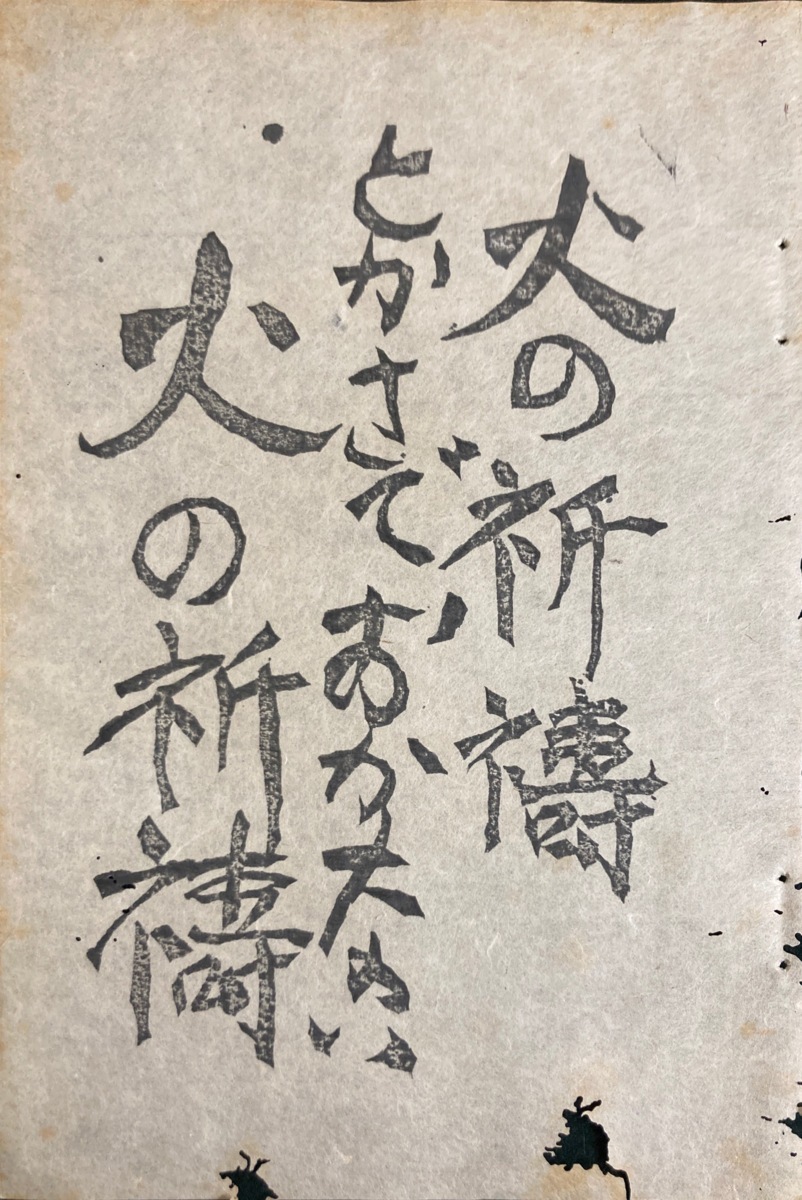 火の祈禱
とかさでおか
火の祈禱